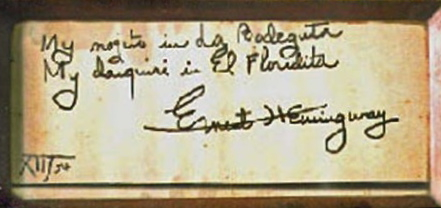 My mojito in La Bodeguita
My daiquiri in El Floridita
Ernest Hemingway